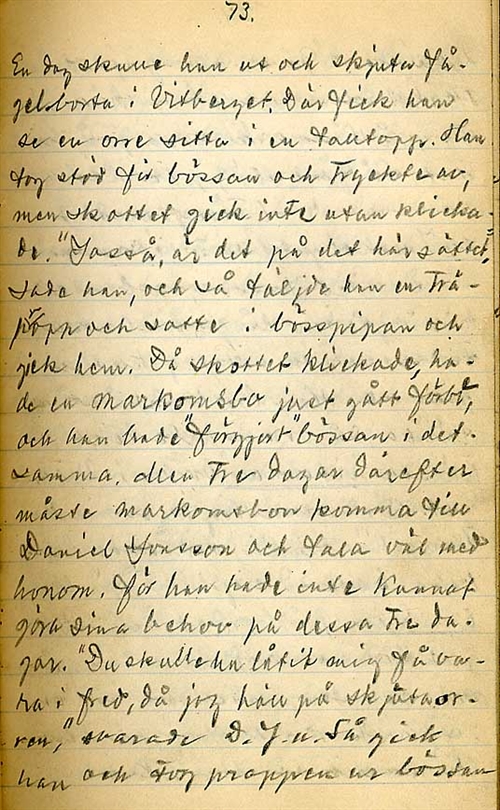 73.
En dag skulle han ut och skjuta få-
gel borta i Vitberget. Där fick han
se en orre sitta i en talltopp. Han
tog stöd för bössan och tryckte av,
men skottet gick inte utan klicka-
de. "Jasså, är det på det här sättet",
sade han, och så täljde han en trä-
propp och satte i bösspipan och
gick hem. Då skottet klickade, ha-
de en markomsbo just gått förbi,
och han hade "förgjort" bössan i det-
samma. Men tre dagar därefter
måste markomsbon komma till
Daniel Jonsson och tala väl med
honom, för han hade inte kunnat
göra sina behov på dessa tre da-
gar. "Du skulle ha låtit mig få va-
ra i fred, då jag höll på skjuta or-
ren," svarade D. J-n. Så gick
han och tog proppen ur bössan